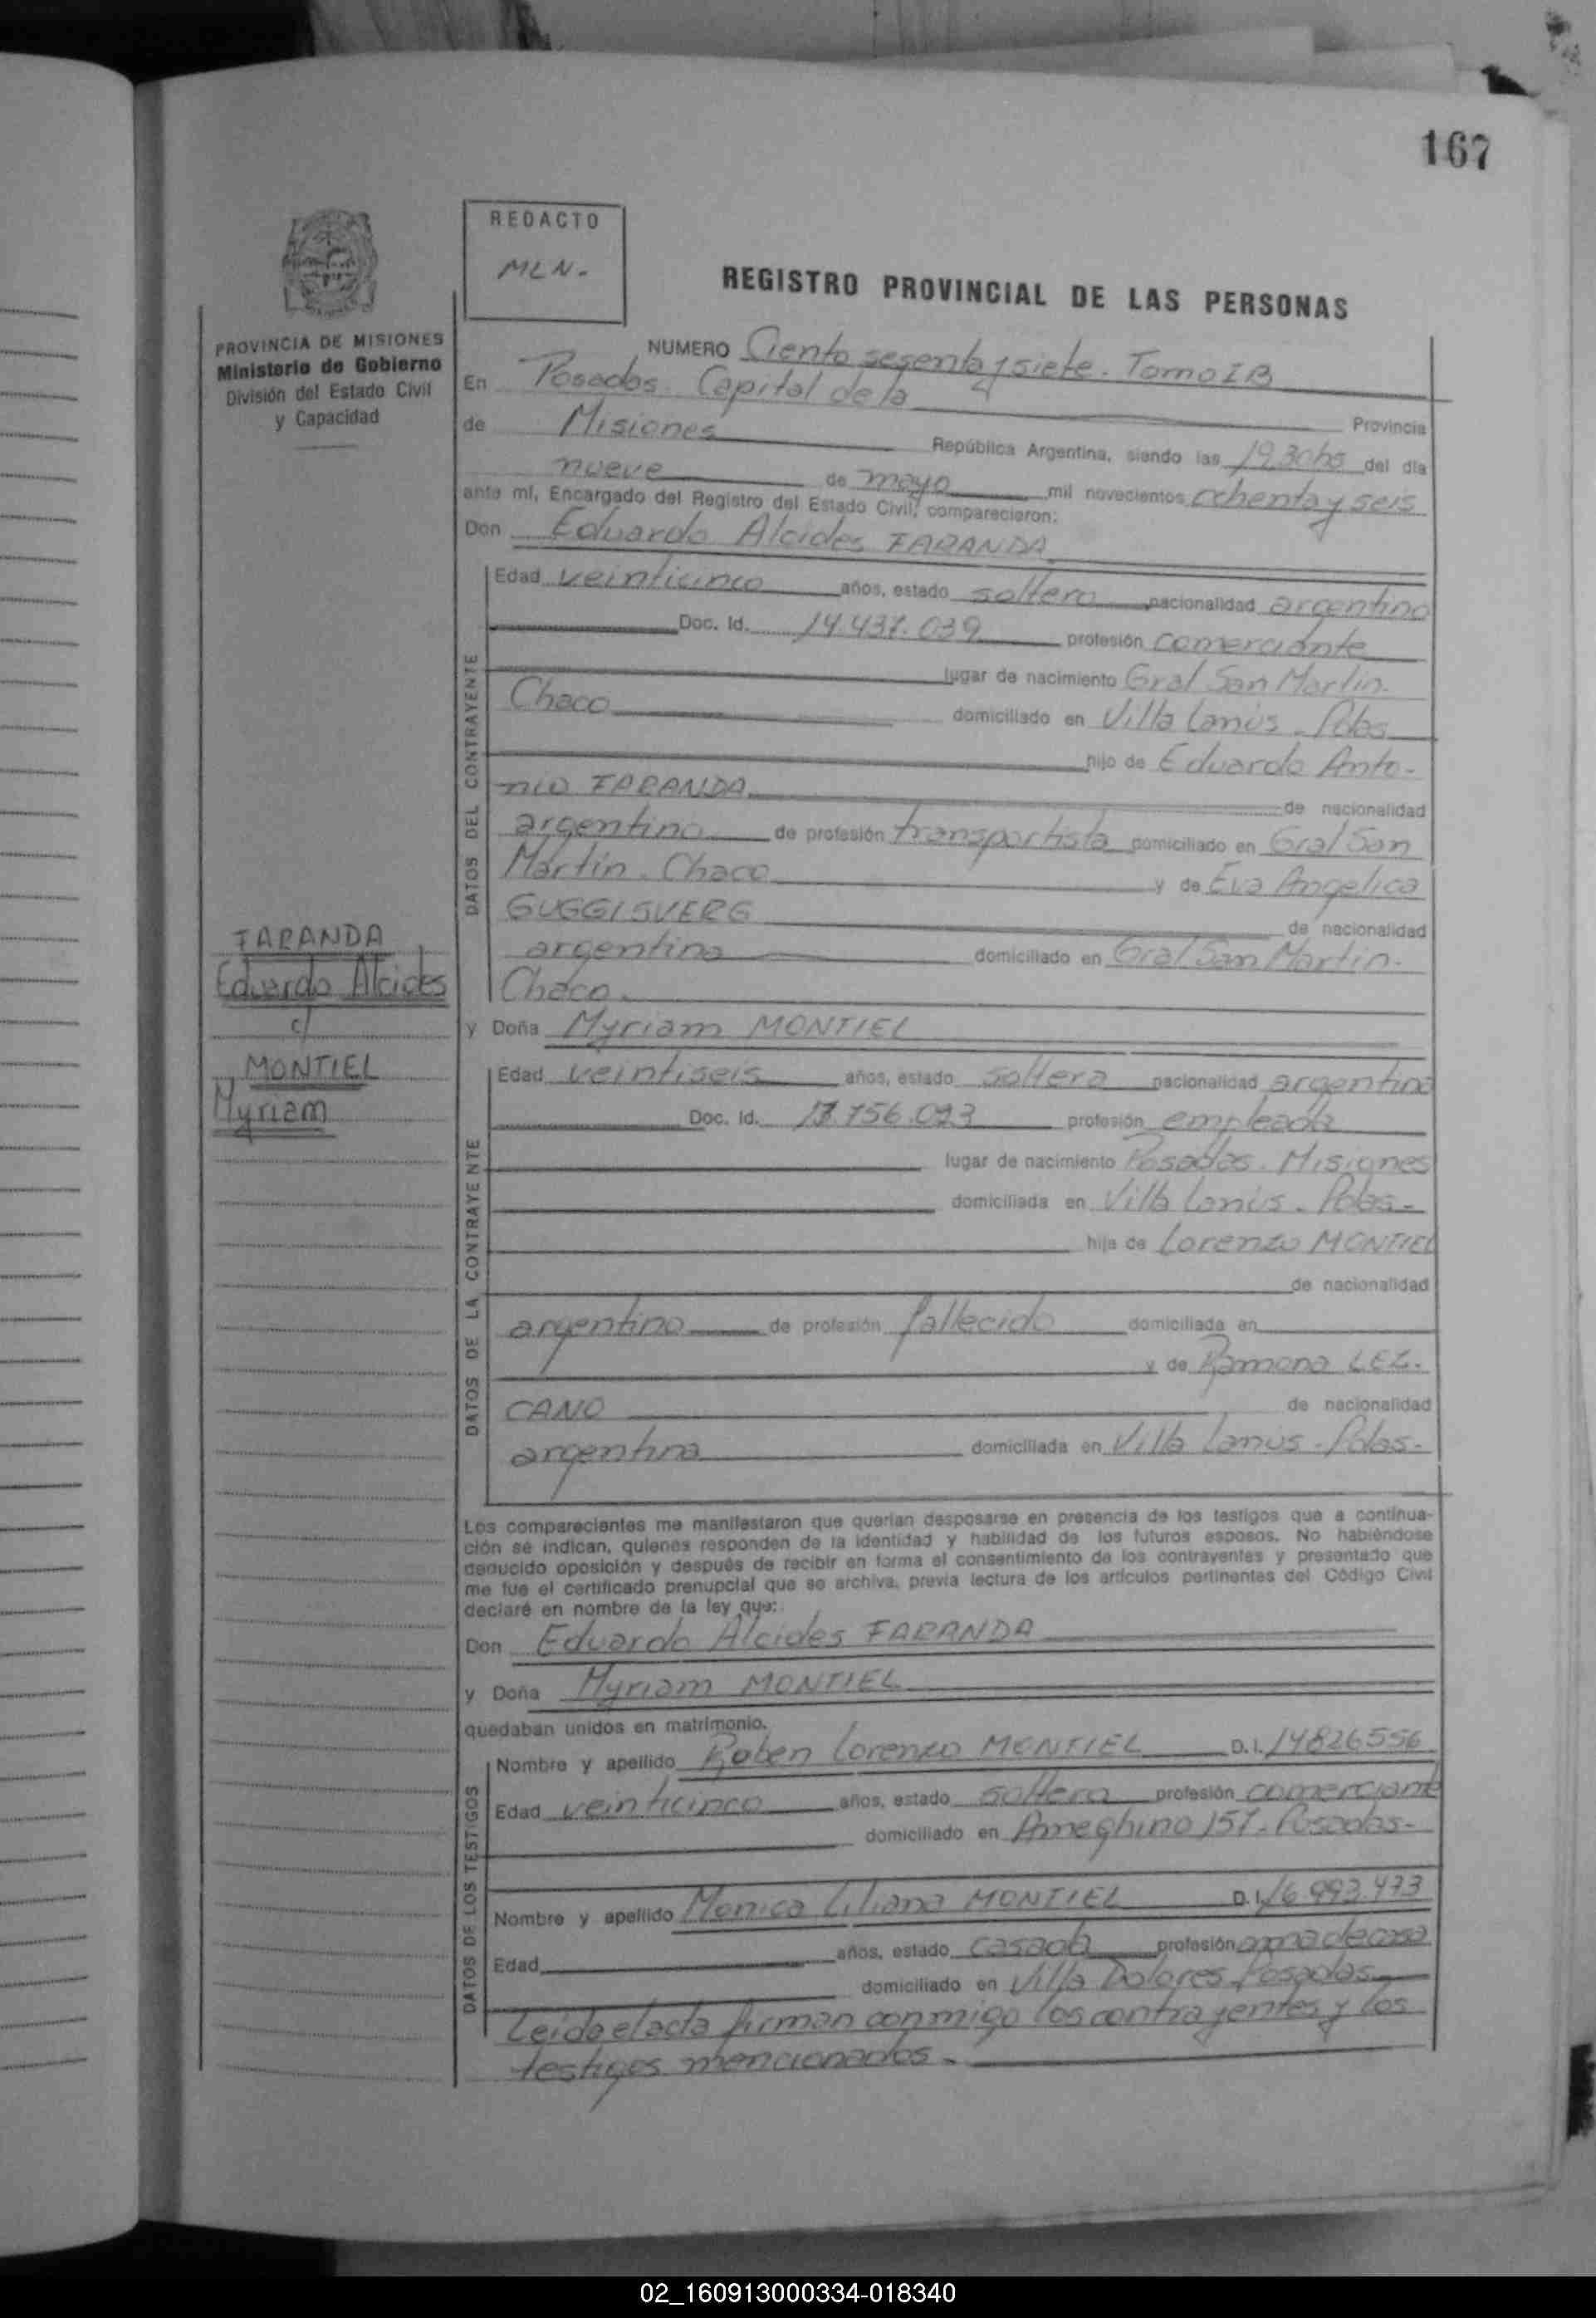 167
REDACTO
MLN.
REGISTRO PROVINCIAL DE LAS PERSONAS
PROVINCIA DE MISIONES
Ministerio de Gobierno
División del Estado Civil
y Capacidad
NUMERO Ciento sesenta y siete. Tomo I B
En Posadas. Capital de la Provincia
de Misiones República Argentina, siendo las 19,30 hs del día
nueve de mayo mil novecientos ochenta y seis
ante mí, Encargado del Registro del Estado Civil, comparecieron:
Don Eduardo Alcides FARANDA
DATOS DEL CONTRAYENTE
Edad veinticinco años, estado soltero nacionalidad argentino
Doc. Id. 14.437.039 profesión comerciante
lugar de nacimiento Gral San Martin.
Chaco domiciliado en Villa Lanús - Pdas
hijo de Eduardo Anto-
nio FARANDA de nacionalidad
argentino de profesión transportista domiciliado en Gral San
Martin. Chaco y de Eva Angelica
GUGGISVERG de nacionalidad
argentina domiciliado en Gral San Martin.
Chaco.
FARANDA
Eduardo Alcides
c/
MONTIEL
Myriam
y Doña Myriam MONTIEL
DATOS DE LA CONTRAYENTE
Edad veintiseis años, estado soltera nacionalidad argentina
Doc. Id. 13.756.093 profesión empleada
lugar de nacimiento Posadas. Misiones
domiciliada en Villa Lanús - Pdas-
hija de Lorenzo MONTIEL
de nacionalidad
argentino de profesión fallecido domiciliada en
y de Ramona LEZ-
CANO de nacionalidad
argentina domiciliada en Villa Lanus - Pdas-
Los comparecientes me manifestaron que querían desposarse en presencia de los testigos que a continua-
ción se indican, quienes responden de la identidad y habilidad de los futuros esposos. No habiéndose
deducido oposición y después de recibir en forma el consentimiento de los contrayentes y presentado que
me fue el certificado prenupcial que se archiva, previa lectura de los artículos pertinentes del Código Civil
declaré en nombre de la ley que:
Don Eduardo Alcides FARANDA
y Doña Myriam MONTIEL
quedaban unidos en matrimonio.
DATOS DE LOS TESTIGOS
Nombre y apellido Ruben Lorenzo MONTIEL D.I. 14826556
Edad veinticinco años, estado soltero profesión comerciante
domiciliado en Ameghino 157 - Posadas-
Nombre y apellido Monica Liliana MONTIEL D.I. 16.993.473
Edad años, estado casada profesión ama de casa
domiciliado en Villa Dolores. Posadas
Leida el acta firman conmigo los contrayentes y los
testigos mencionados.
02_160913000334-018340